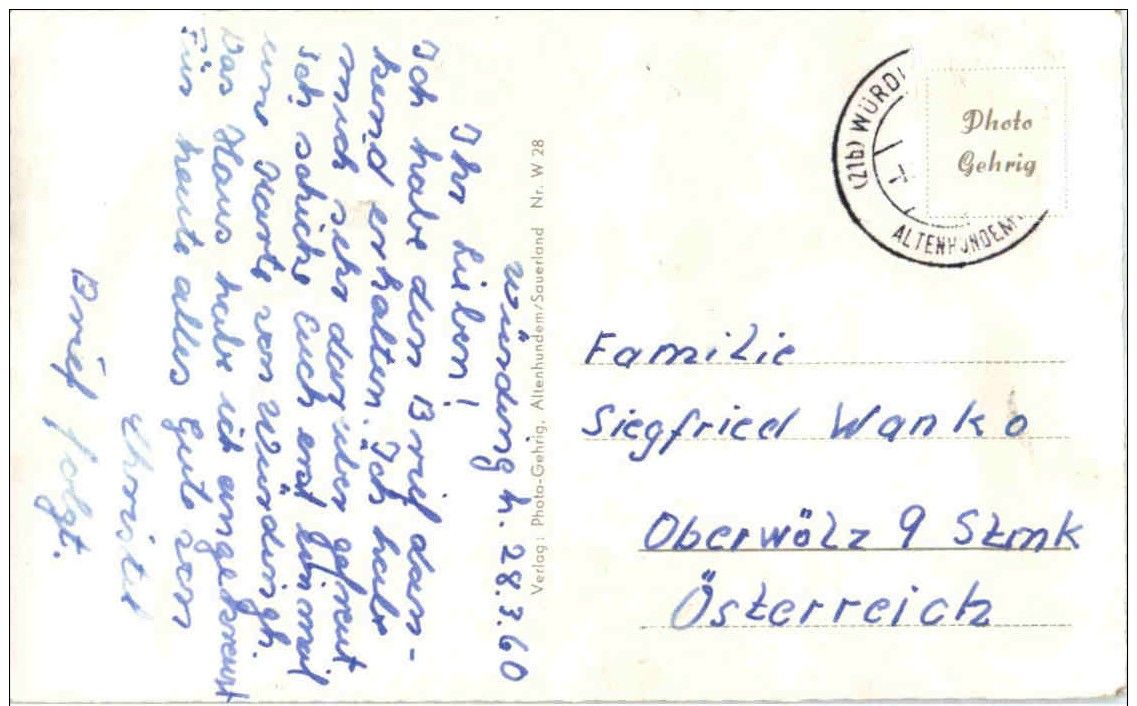 Würdingh. 28.3.60
Ihr Lieben!
Ich habe den Brief dan-
kend erhalten. Ich habe
mich sehr darüber gefreut
ich schicke Euch erst einmal
eine Karte von Würdingh.
Das Haus habe ich angekreuzt
Für heute alles Gute von
Christel
Brief folgt.
Verlag: Photo-Gehrig, Altenhundem/Sauerland Nr. W 28
(21b) WÜRDI
ALTENHUNDEM
Photo
Gehrig
Familie
Siegfried Wanko
Oberwölz 9 Stmk
Österreich